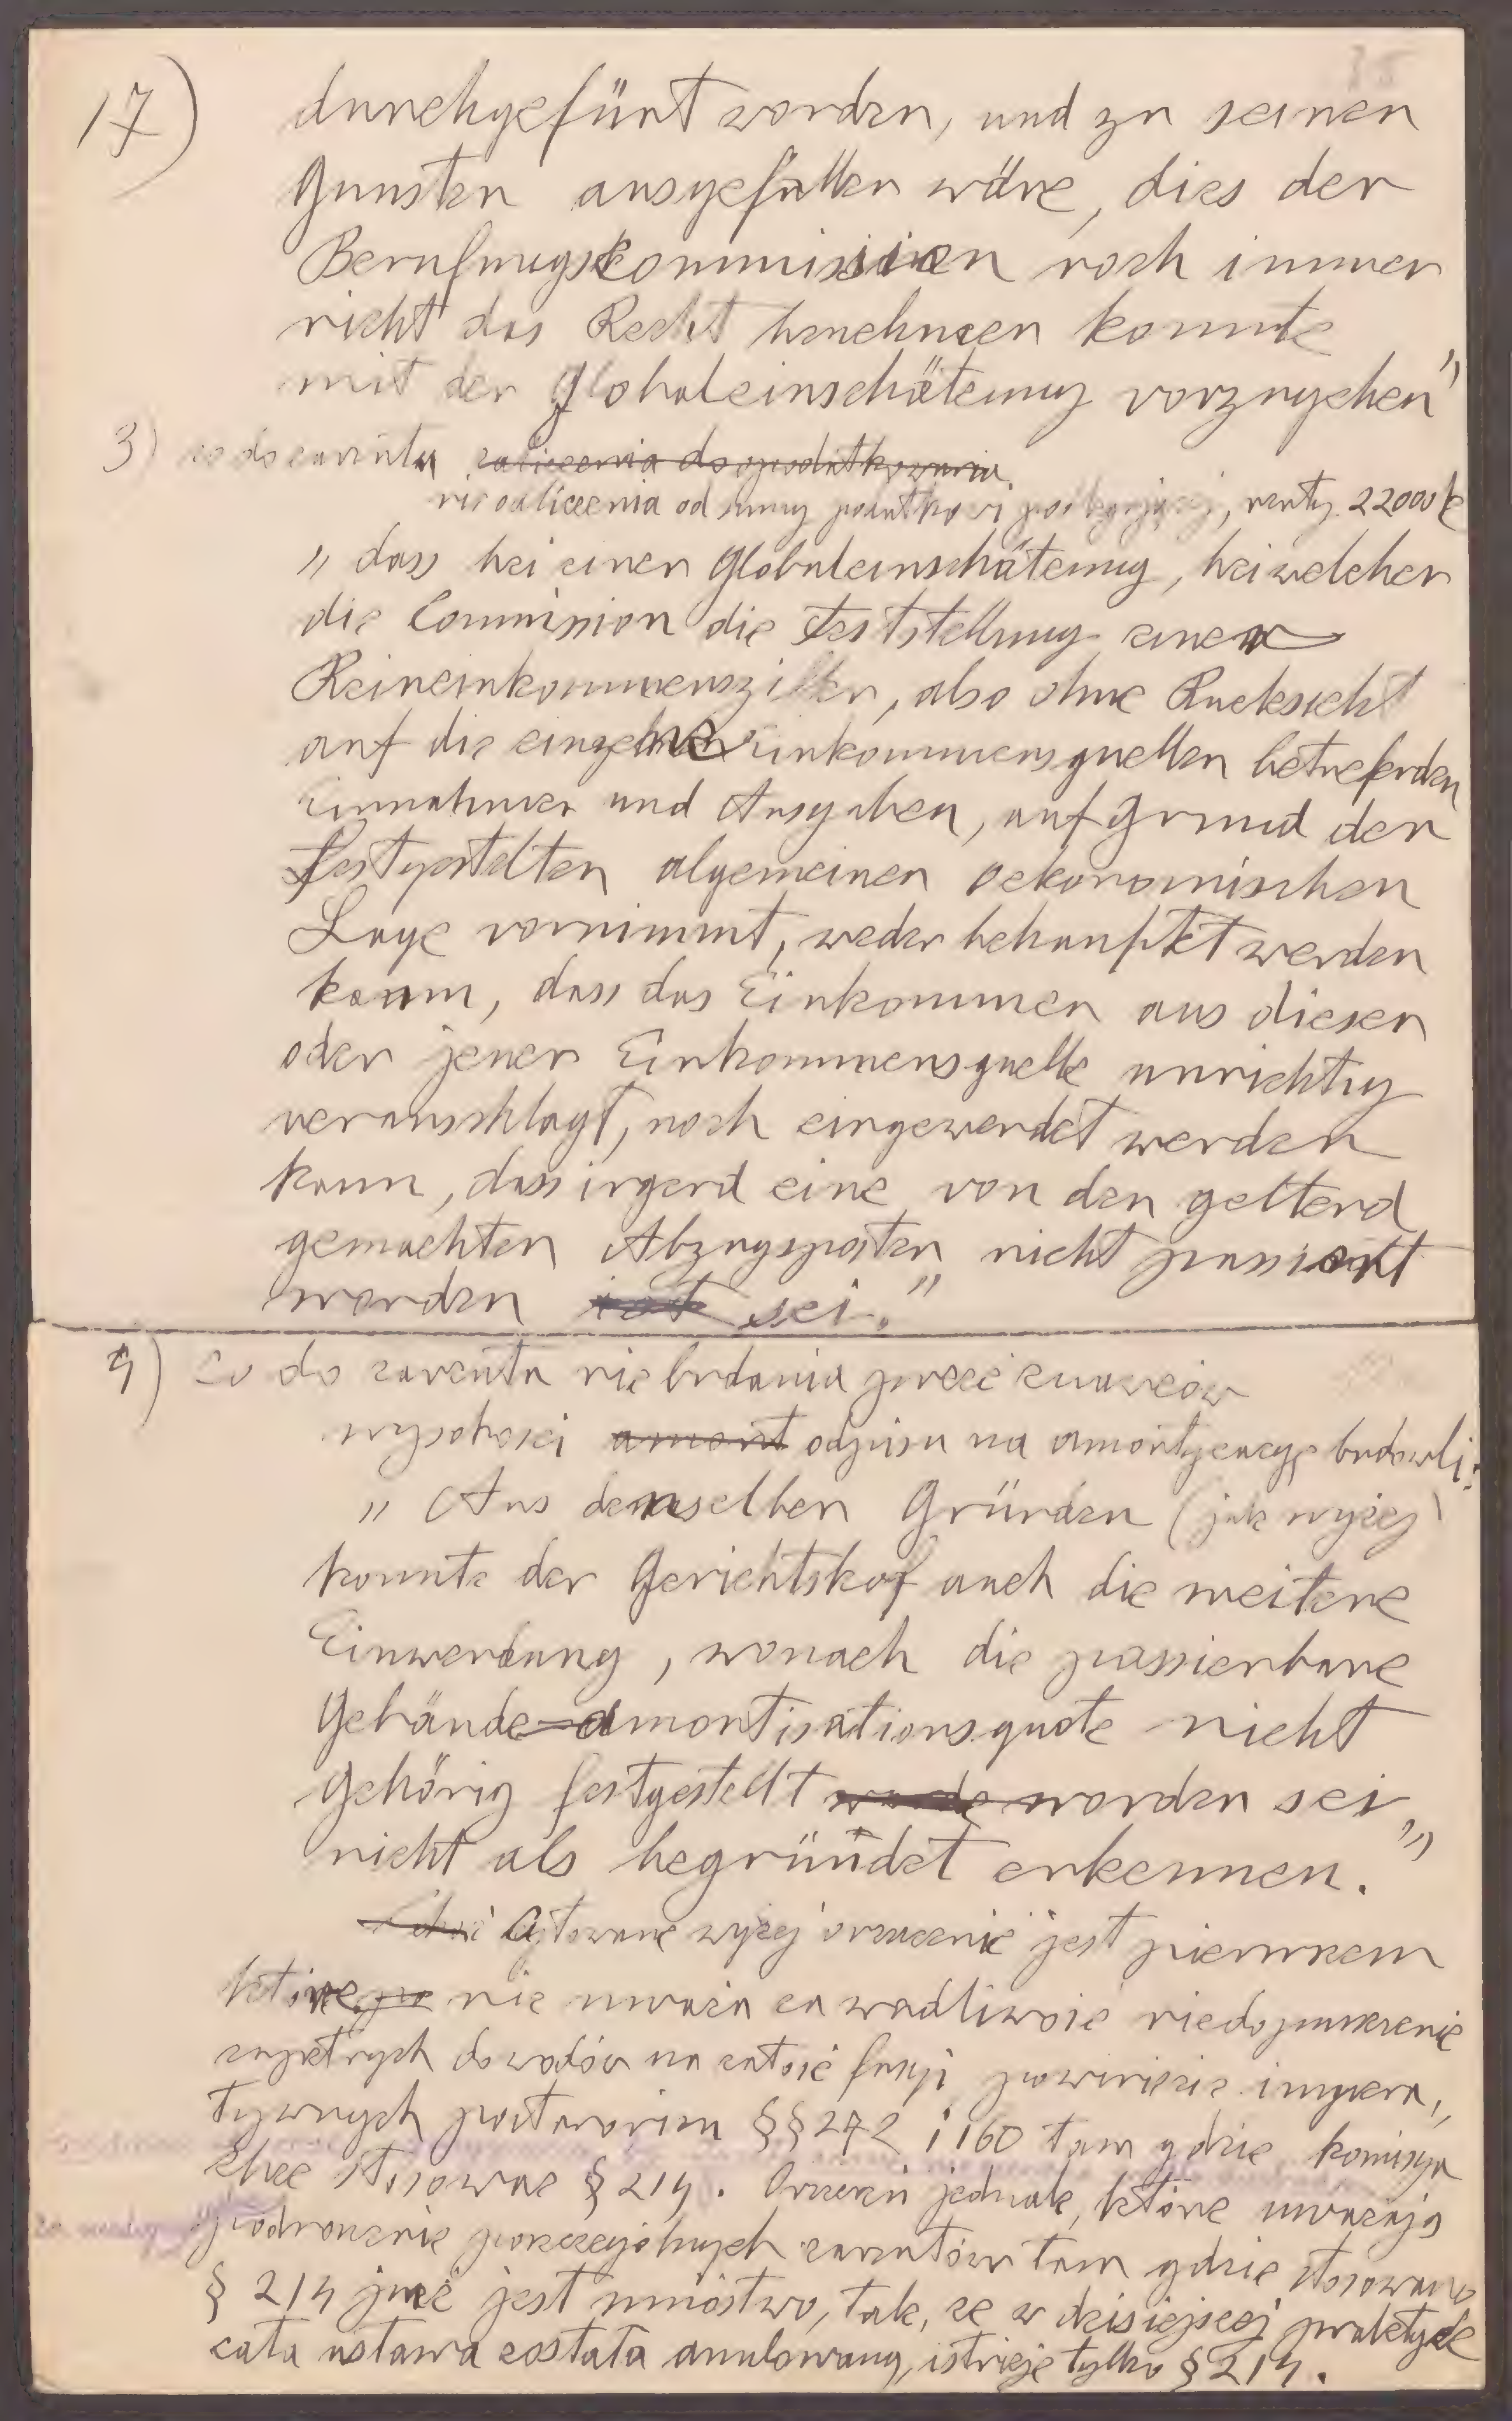 35
17)
durchgefürt worden, und zu seinen
Gunsten ausgefallen wäre, dies der
Berufungskommission noch immer
nicht das Recht benehmen konnte
mit der Globaleinschätzung vorzugehen"
3) co do zarzutu zaliczenia do opodatkowania
nieodliczenia od sumy podatkowi podlegającej, renty 22000 k
" dass bei einer Globaleinschätzung, bei welcher
die Commission die Feststellung einer
Reineinkommensziffer, also ohne Rucksicht
auf die einzelne Einkommensquellen betrefenden
Einnahmen und Ausgaben, auf Grund der
festgestelten algemeinen oekonomischen
Lage vornimmt, weder behauptet werden
kann, dass das Einkommen aus dieser
oder jener Einkommensquelle unrichtig
veranschlagt, noch eingewendet werden
kann, dass irgend eine von den geltend
gemachten Abzugsposten nicht passiert
worden ist sei."
4) co do zarzutu nie badania przez znawców
wysokości amort odpisu na amortyzacyę budowli:
" Aus denselben Gründen (jak wyżej)
konnte der Gerichtshof auch die weitere
Einwendung, wonach die passierbare
Gebäude-amortisationsquote nicht
gehörig festgestellt wurde worden sei
nicht als begründet erkennen."
Cytowane wyżej orzeczenie jest pierwszem
które nie uważa za wadliwość niedopuszczenie
zupełnych dowodów na całość fasyi powinięcie impera,
tywnych postanowien §§ 272 i 160 tam gdzie komisya
chce stosowac § 214. Orzeczeń jednak, które uważają
podnoszenie poszczególnych zarzutów tam gdzie stosowano
§ 214 już jest mnóstwo, tak, że w dzisiejszej praktyce
cała ustawa została anulowaną, istnieje tylko § 214.